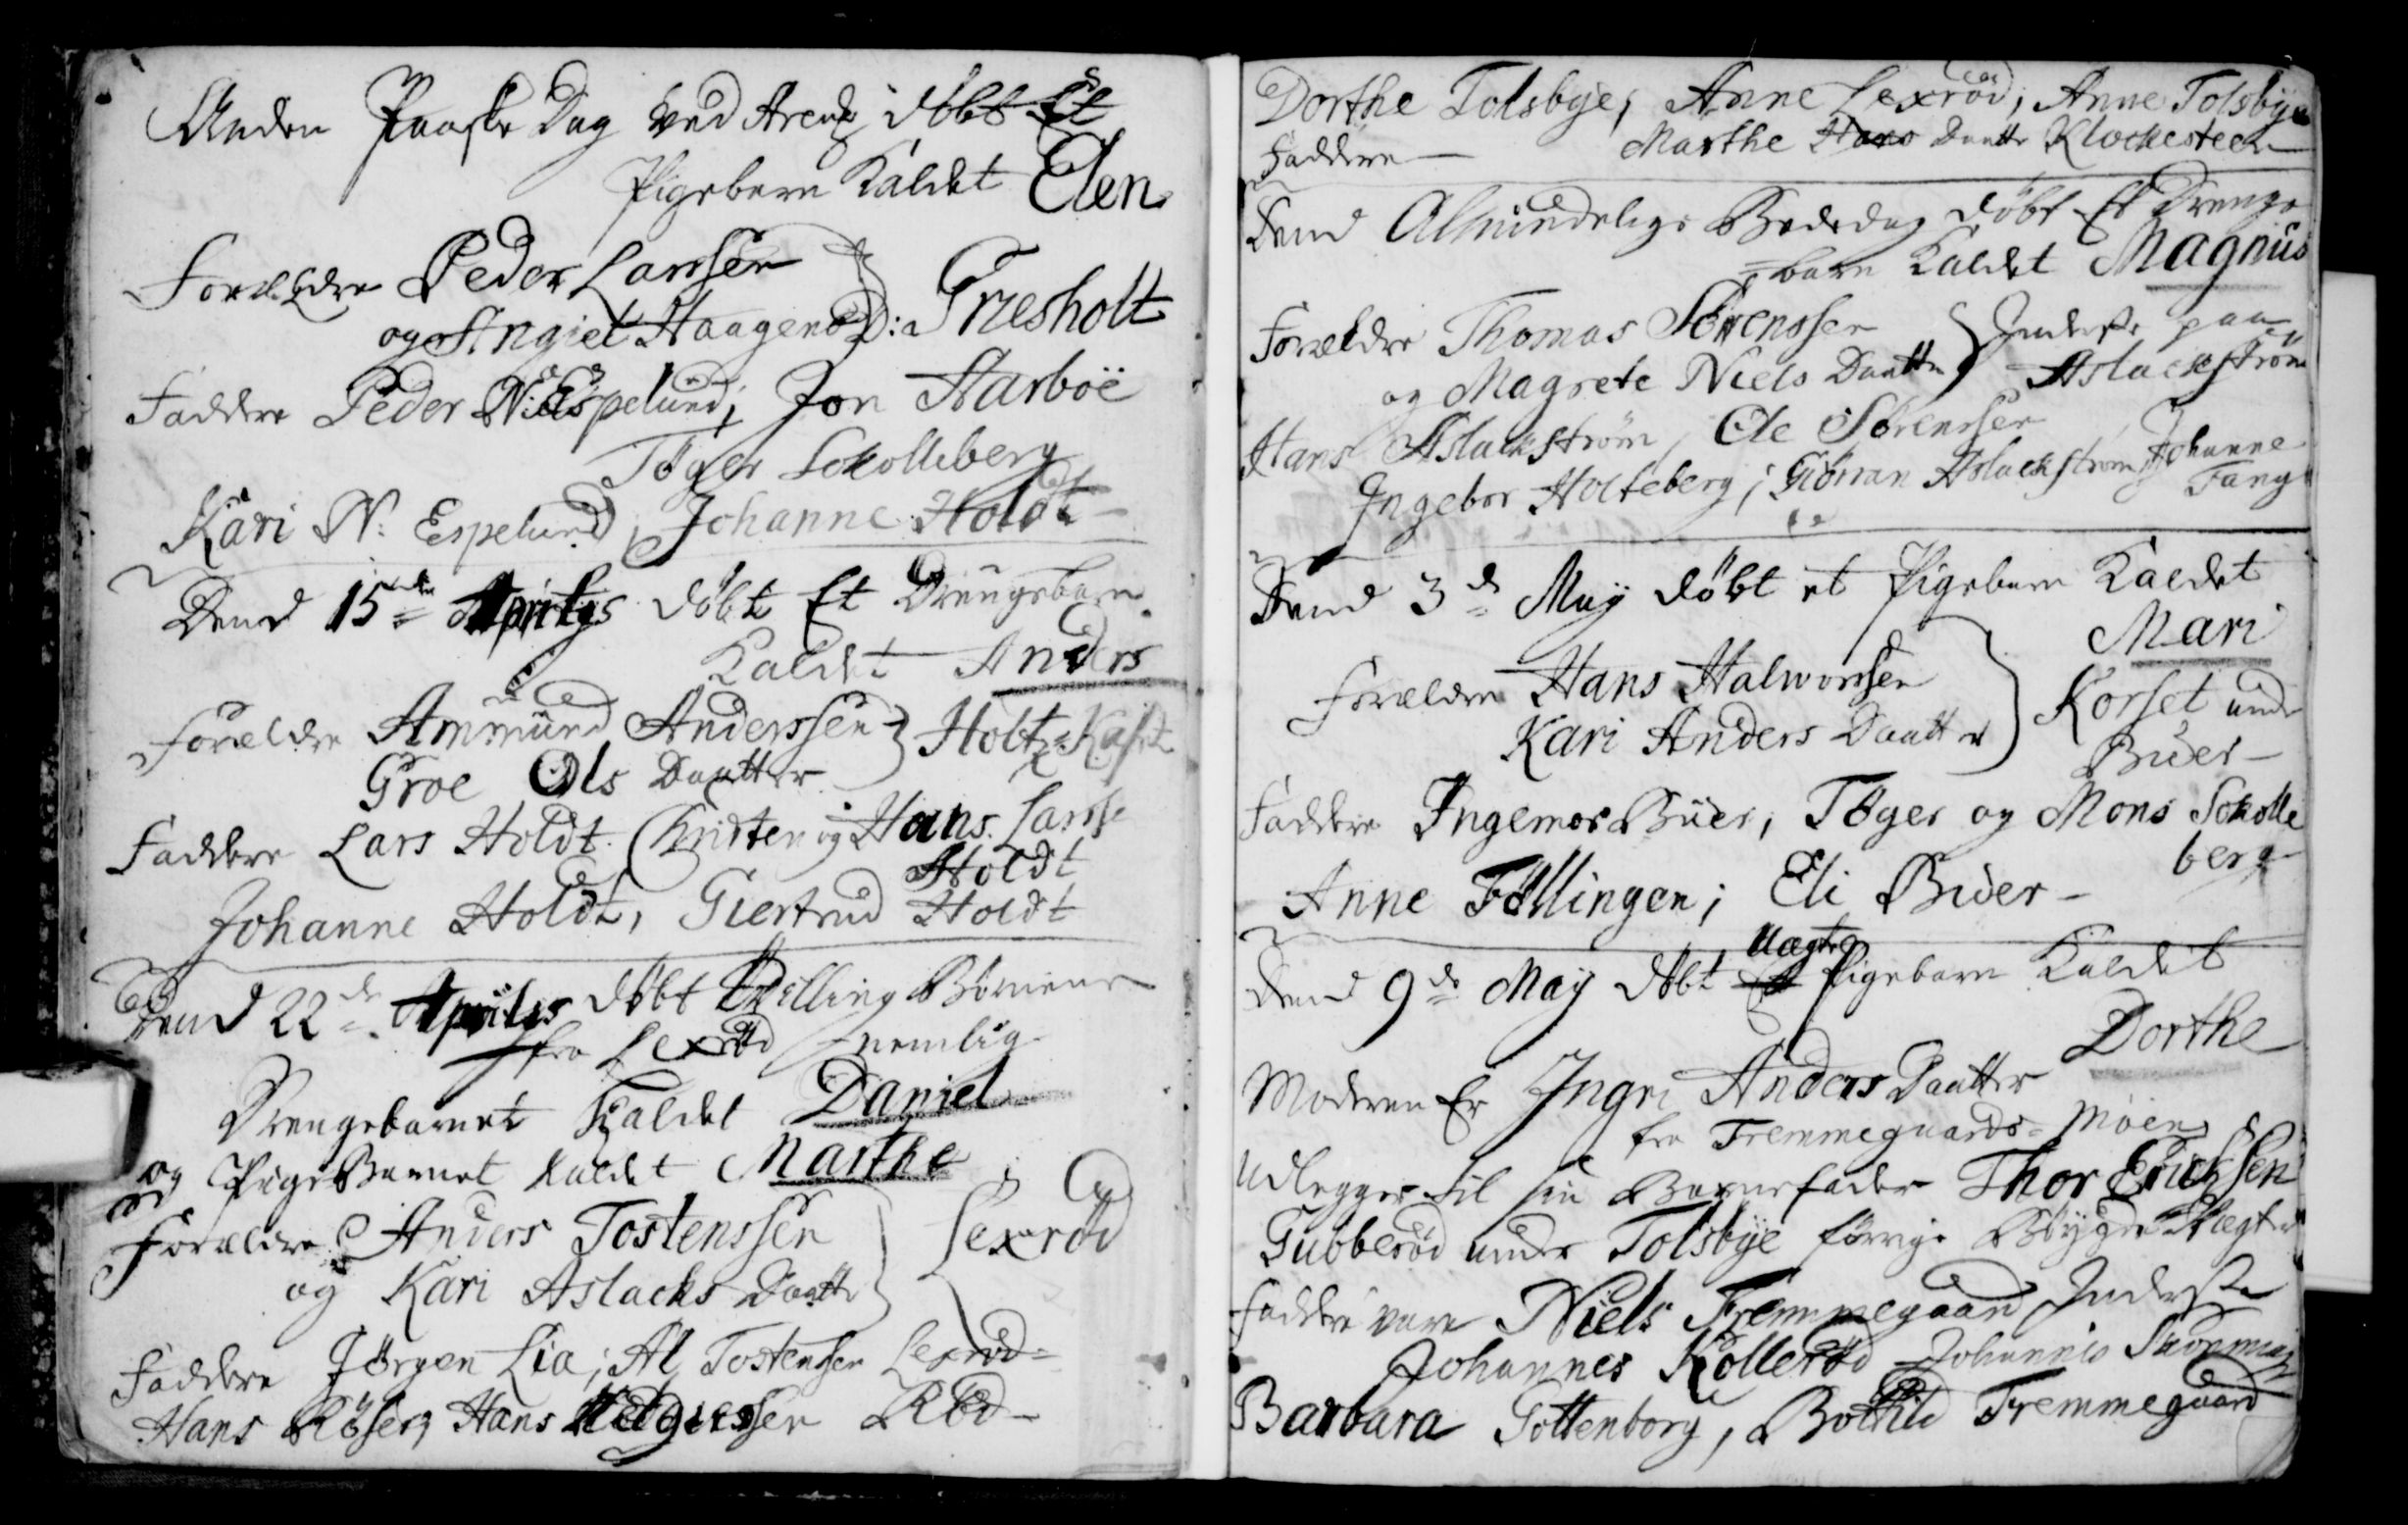 Anden Paaske Dag ved Aremk döbt Et
Pigebarn Kaldet Elen
Forældre Peder Larssen
og Angiet Haagens D: Griesholt
Faddere Peder N: Espelund; Jon Aarböe
Töger Skolleberg
Kari N: Espelund, Johanne Holdt
Dend 15de Aprilys döbt Et Drengebarn
Kaldet Anders
Forældre Ammund Anderssen Holtz-Kaset
Groe Ols Daatter
Faddere Lars Holdt. Christen og Hans Larss
Holdt
Johanne Holdt, Giertrud Holdt
Dend 22de Apriles döbt Tvilling Börnene
fra Lexröd nemlig
Drengebarnet Kaldet Daniel
og PigeBarnet kaldet Marthe
Forældre Anders Tostenssen Lexröd
og Kari Aslachs Daatter
Faddere Jörgen Lia; Al Tostenssen Lexröd
Hans Röser, Hans Röd
Dorthe Tolsbye; Anne Lexröd; Anne Tolsbye
Faddere Marthe Hans Daatter Klockesteen
Dend Almindelige Bededag döbt Et Drenge
barn Kaldet Magnus
Forældre Thomas Sörenssen Inderste paa
og Magrete Niels Daatter Aslackström
Hans Aslackström, Ole Sörenssen
Ingebor Holteberg; Göran Aslackström, Johanne
Tang
Dend 3de May döbt et Pigebarn Kaldet
Mari
Forældre Hans Halworssen Korset under
Kari Anders Daatter Buer
Faddere Ingemor Buer; Töger og Mons Skolle
berg
Anne Föllingen; Eli Buer
Uægte
Dend 9de May döbt Et Pigebarn Kaldet
Dorthe
Moderen Er Ingri Anders Daatter
fra Fremmegaards-Moen
Udlegger til sin Barnefader Thor Ericksen
Gubberöd under Tolsbye
Faddere vare Niels Fremmegaard Inderste
Johannes Kolleröd Johannis
Barbara Gottenborg, Bothild Fremmegaard